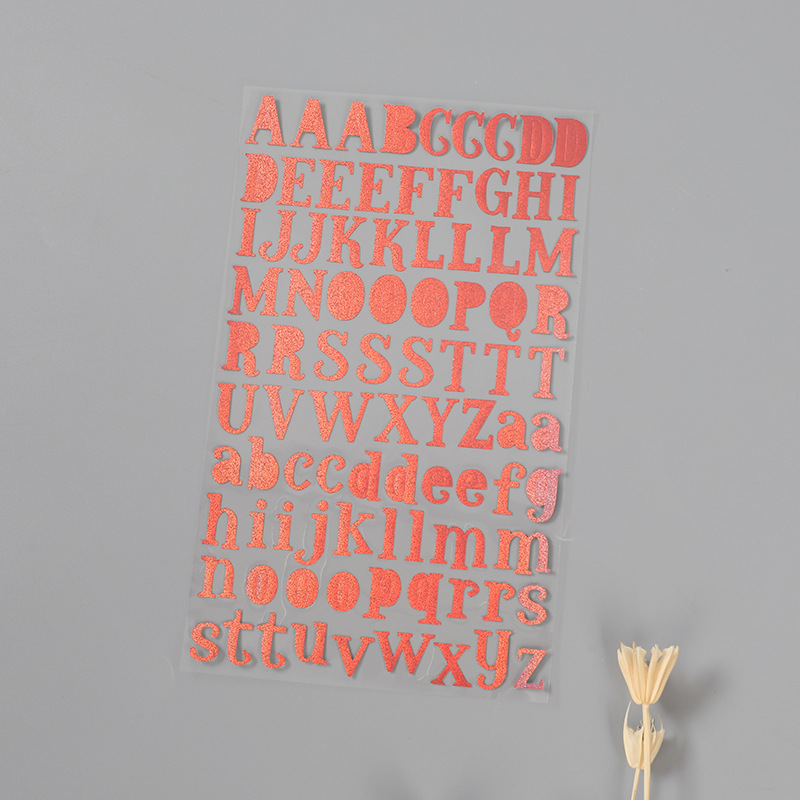 AAABCCCDD
DEEEFFGHI
IJJKKLLLM
MNOOOPQR
RRSSSTTT
UVWXYZaa
abccddeefg
hiijkllmm
nooopqrrs
sttuvwxyz